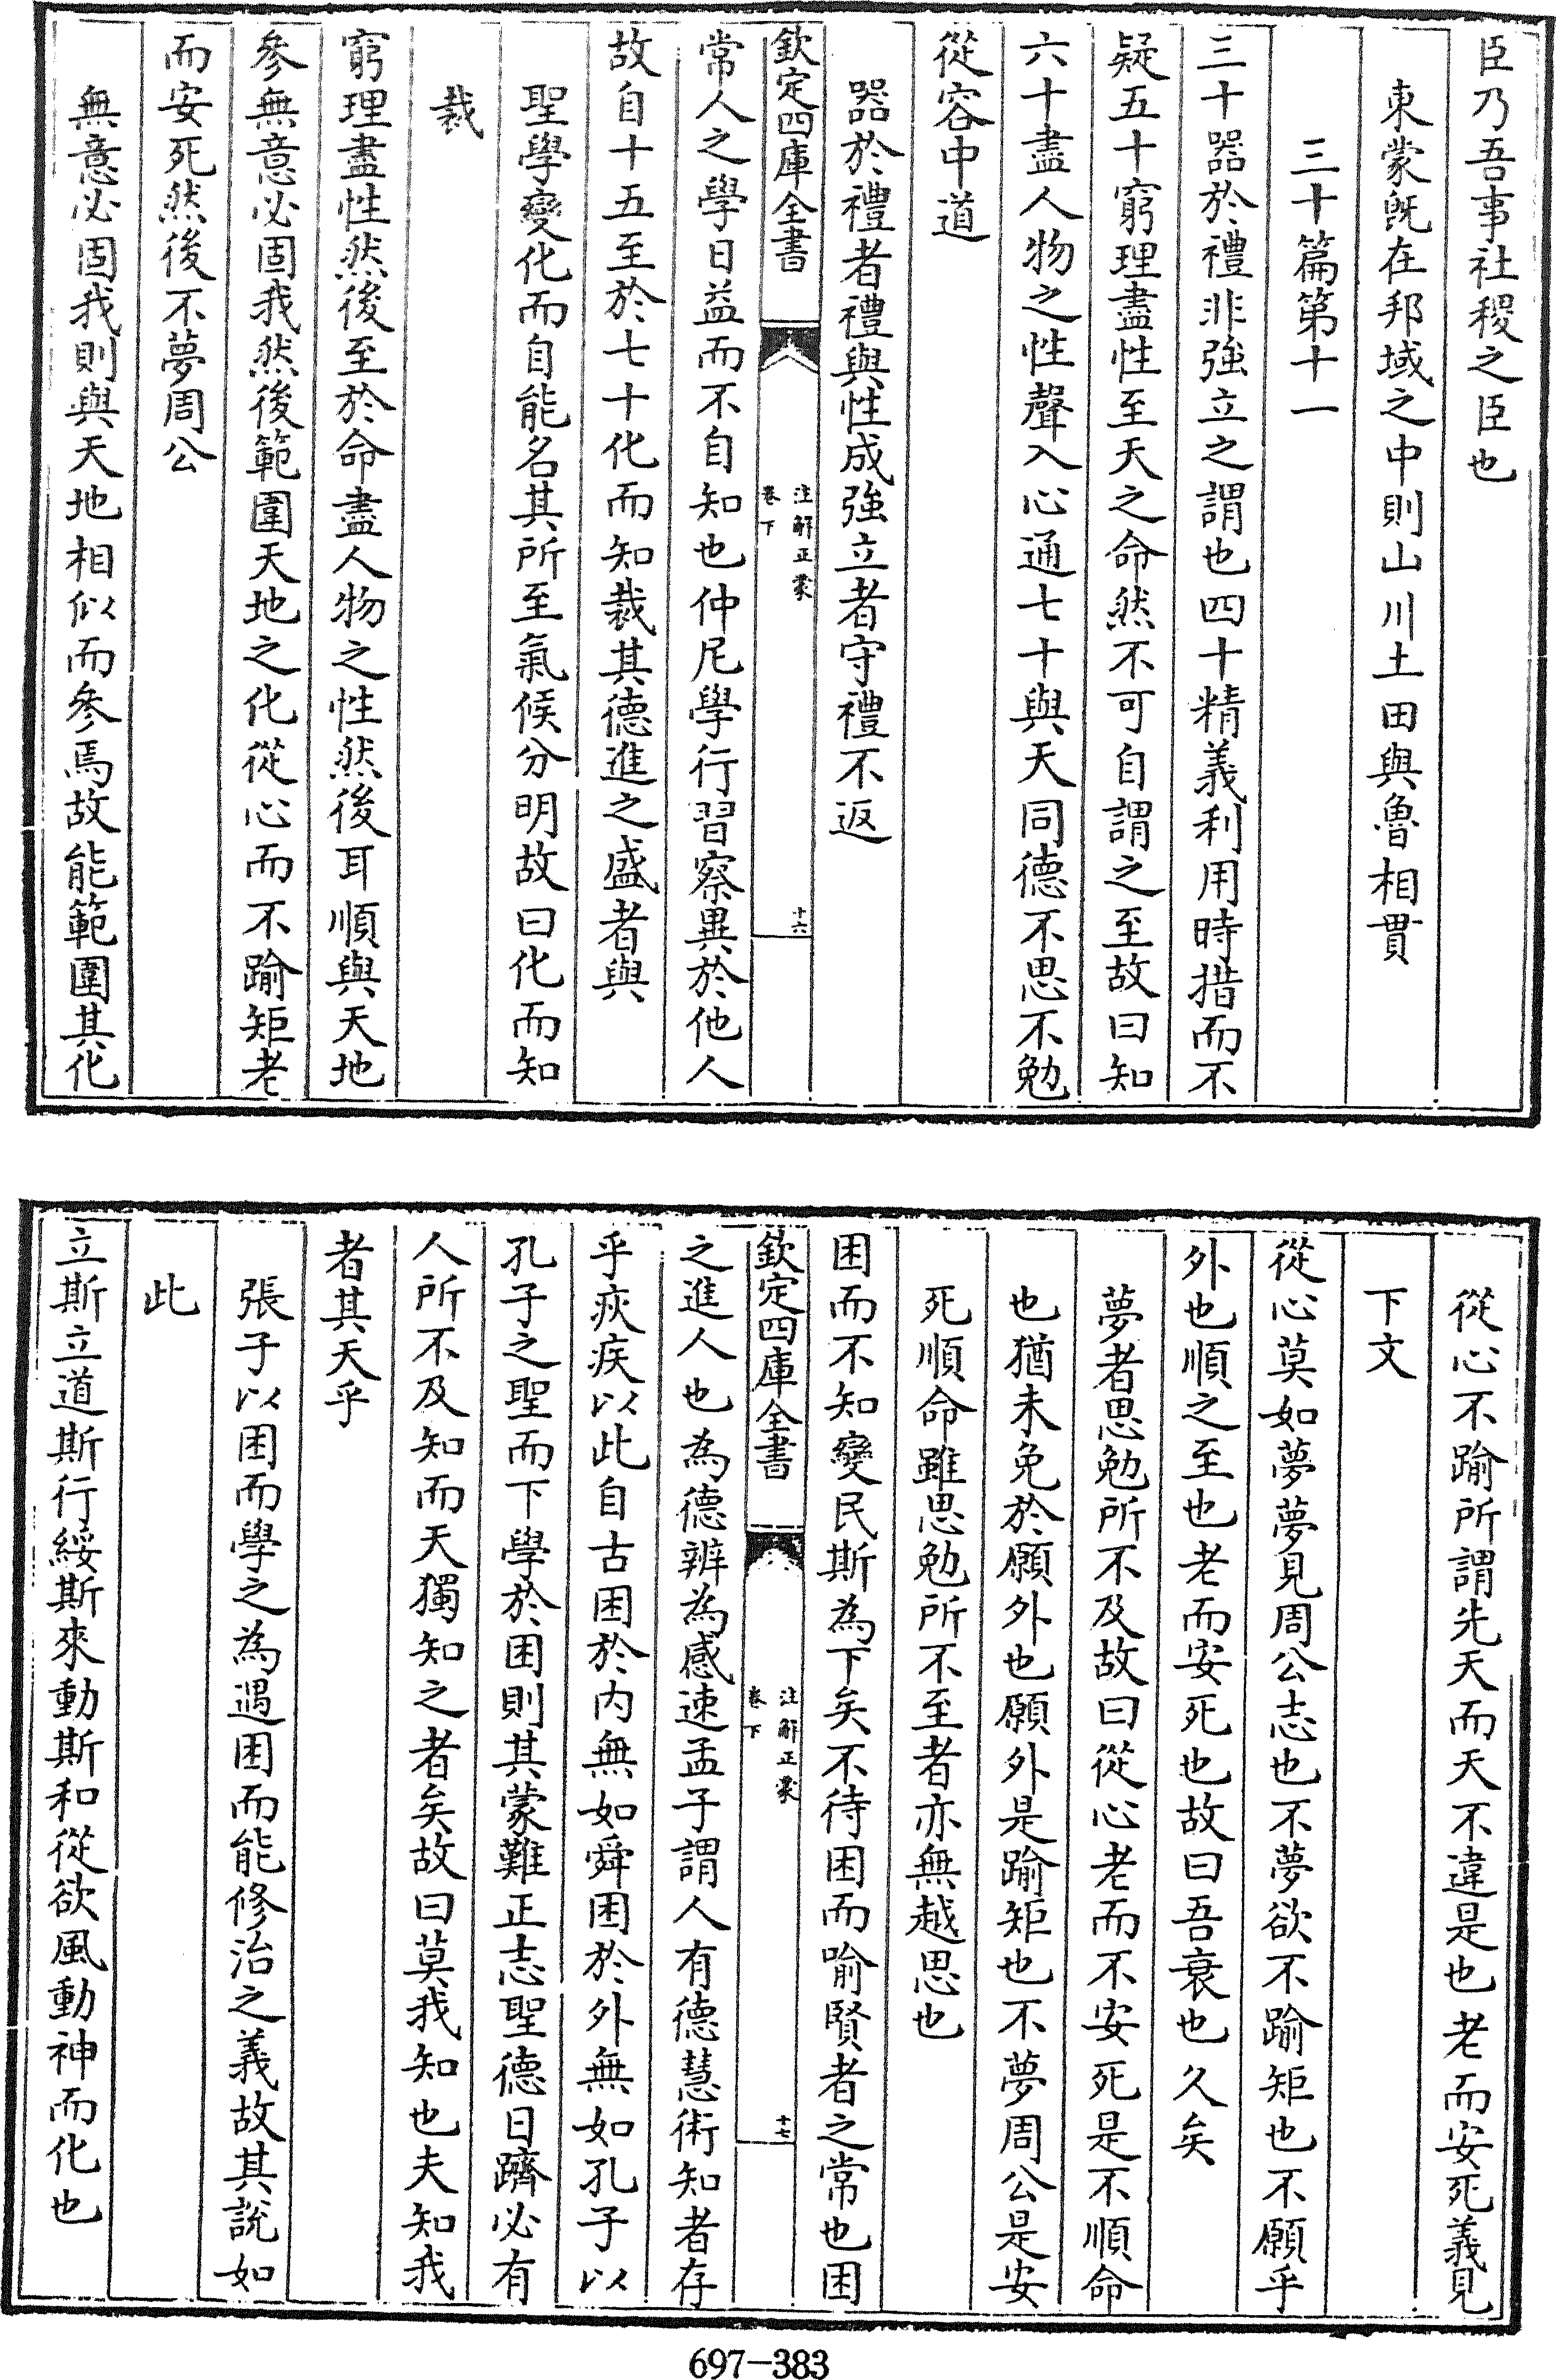 臣乃吾事社稷之臣也
東蒙旣在邦域之中則山川土田與魯相貫
三十篇第十一
三十器於禮非強立之謂也四十精義利用時措而不
疑五十窮理盡性至天之命然不可自謂之至故曰知
六十盡人物之性聲入心通七十與天同德不思不勉
從容中道
器於禮者禮與性成強立者守禮不返
欽定四庫全書
注解正蒙
卷下
十六
常人之學日益而不自知也仲尼學行習察異於他人
故自十五至於七十化而知裁其德進之盛者與
聖學變化而自能名其所至氣候分明故曰化而知
裁
窮理盡性然後至於命盡人物之性然後耳順與天地
參無意必固我然後範圍天地之化從心而不踰矩老
而安死然後不夢周公
無意必固我則與天地相似而參焉故能範圍其化
從心不踰所謂先天而天不違是也老而安死義見
下文
從心莫如夢夢見周公志也不夢欲不踰矩也不願乎
外也順之至也老而安死也故曰吾衰也久矣
夢者思勉所不及故曰從心老而不安死是不順命
也猶未免於願外也願外是踰矩也不夢周公是安
死順命雖思勉所不至者亦無越思也
困而不知變民斯為下矣不待困而喻賢者之常也困
欽定四庫全書
注解正蒙
卷下
十七
之進人也為德辨為感速孟子謂人有德慧術知者存
乎疢疾以此自古困於内無如舜困於外無如孔子以
孔子之聖而下學於困則其蒙難正志聖德日躋必有
人所不及知而天獨知之者矣故曰莫我知也夫知我
者其天乎
張子以困而學之為遇困而能修治之義故其說如
此
立斯立道斯行綏斯來動斯和從欲風動神而化也
697-383